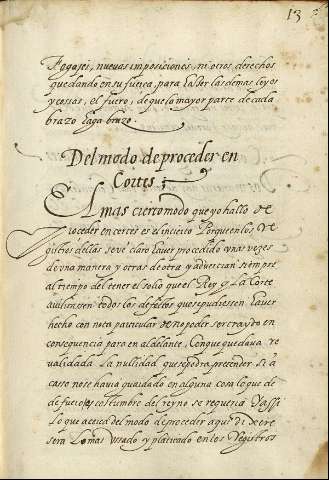 13
fogajes, nuevas imposiciones, ni otros derechos
quedando en su fuerça, para hazer las demas leyes
y cossas, el fuero, de que la mayor parte de cada
brazo haga brazo.
Del modo de proceder en
Cortes
El mas cierto modo que yo hallo de
proceder en cortes es el incierto Porque en los Re
gistros dellas se vé claro hauer procedido unas vezes
de una manera y otras de otra y aduertian siempre
al tiempo del tener el solio que el Rey y La Corte
auilitassen todos los defectos que se pudiessen hauer
hecho con nota particular de no poder ser traydo en
consequencia para en adelante, Con que quedaua re
validada La nullidad que se podra pretender si a
casso no se hauia guardado en alguna cosa lo que de
de fuero, o costumbre del reyno se requeria Y assi
lo que acerca del modo de proceder aqui dixere
sera Lo mas vssado y platicado en los Registros